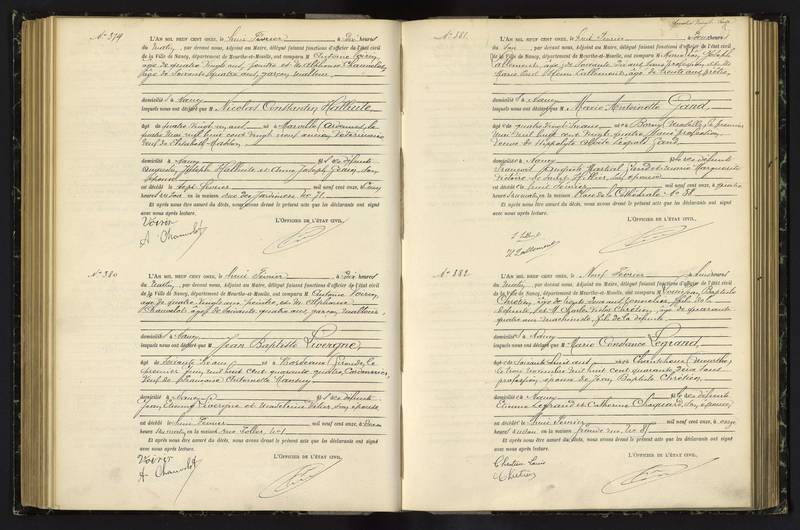 N° 379
L'AN MIL NEUF CENT ONZE, le huit Février à dix heures
du matin, par devant nous, Adjoint au Maire, délégué faisant fonctions d'officier de l'état civil
de la Ville de Nancy, département de Meurthe-et-Moselle, ont comparu M. Antoine Voirin,
âgé de quatre vingts ans, peintre et M. Alphonse Chamelot,
âgé de soixante quatre ans, garçon
domiciliés à Nancy
lesquels nous ont déclaré que M Nicolas Constantin Halleute
âgé de quatre vingt un ans né à Marville
quatre mai mil huit cent vingt neuf, ancien vétérinaire
veuf de Elisabeth
domicilié à Nancy fils des défunts
Augustin Joseph Halleute et Anne Joseph son
épouse
est décédé le sept Février mil neuf cent onze, à cinq
heures du soir en la maison rue des Jardiniers No 71
Et après nous être assuré du décès, nous avons dressé le présent acte que les déclarants ont signé
avec nous après lecture.
L'OFFICIER DE L'ÉTAT CIVIL,
Voirin
A. Chamelot
N° 380
L'AN MIL NEUF CENT ONZE, le huit Février à dix heures
du matin, par devant nous, Adjoint au Maire, délégué faisant fonctions d'officier de l'état civil
de la Ville de Nancy, département de Meurthe-et-Moselle, ont comparu M. Antoine Voirin,
âgé de quatre vingts ans, peintre et M. Alphonse
Chamelot, âgé de soixante quatre ans, garçon
domiciliés à Nancy
lesquels nous ont déclaré que M Jean Baptiste Livergne
âgé de soixante six ans né à Bordeaux (Gironde), le
premier Juin mil huit cent quarante quatre, Cordonnier,
veuf de Françoise Antoinette
domicilié à Nancy fils des défunts
Jean Livergne et Madeleine son épouse
est décédé le huit Février mil neuf cent onze, à deux
heures du matin en la maison rue
Et après nous être assuré du décès, nous avons dressé le présent acte que les déclarants ont signé
avec nous après lecture.
L'OFFICIER DE L'ÉTAT CIVIL,
Voirin
A. Chamelot
N° 381
L'AN MIL NEUF CENT ONZE, le huit Février à heures
du soir, par devant nous, Adjoint au Maire, délégué faisant fonctions d'officier de l'état civil
de la Ville de Nancy, département de Meurthe-et-Moselle, ont comparu M.
Lallement, âgé de soixante dix ans, sans profession et M.
Marie Lallement, âgé de trente ans, prêtre,
domiciliés à Nancy
lesquels nous ont déclaré que M Marie Antoinette Gand
âgée de quatre vingt six ans née à Borny (Moselle), le premier
mai mil huit cent vingt quatre, sans profession,
veuve de Hippolyte Léopold Gand
domiciliée à Nancy fille des défunts
François Auguste Martial Gand et Marie Marguerite
Victoire son épouse
est décédée le huit Février mil neuf cent onze, à quatre
heures du matin, en la maison place de la Cathédrale No 58
Et après nous être assuré du décès, nous avons dressé le présent acte que les déclarants ont signé
avec nous après lecture.
L'OFFICIER DE L'ÉTAT CIVIL,
H. Lallement
N° 382
L'AN MIL NEUF CENT ONZE, le neuf Février à heures
du matin, par devant nous, Adjoint au Maire, délégué faisant fonctions d'officier de l'état civil
de la Ville de Nancy, département de Meurthe-et-Moselle, ont comparu M. Louis Jean Baptiste
Chrétien, âgé de trente deux ans, tonnelier, fils de la
défunte, et M. Charles Victor Chrétien, âgé de quarante
quatre ans, machiniste, fils de la défunte
domiciliés à Nancy
lesquels nous ont déclaré que Marie Constance Legrand
âgée de soixante huit ans née à Chanteheux (Meurthe),
le trois Novembre mil huit cent quarante deux, sans
profession, épouse de Jean Baptiste Chrétien
domiciliée à Nancy fille des défunts
Etienne Legrand et Catherine son épouse
est décédée le huit Février mil neuf cent onze, à onze
heures du soir en la maison grande rue, No 81
Et après nous être assuré du décès, nous avons dressé le présent acte que les déclarants ont signé
avec nous après lecture.
L'OFFICIER DE L'ÉTAT CIVIL,
Chrétien Louis
Chrétien